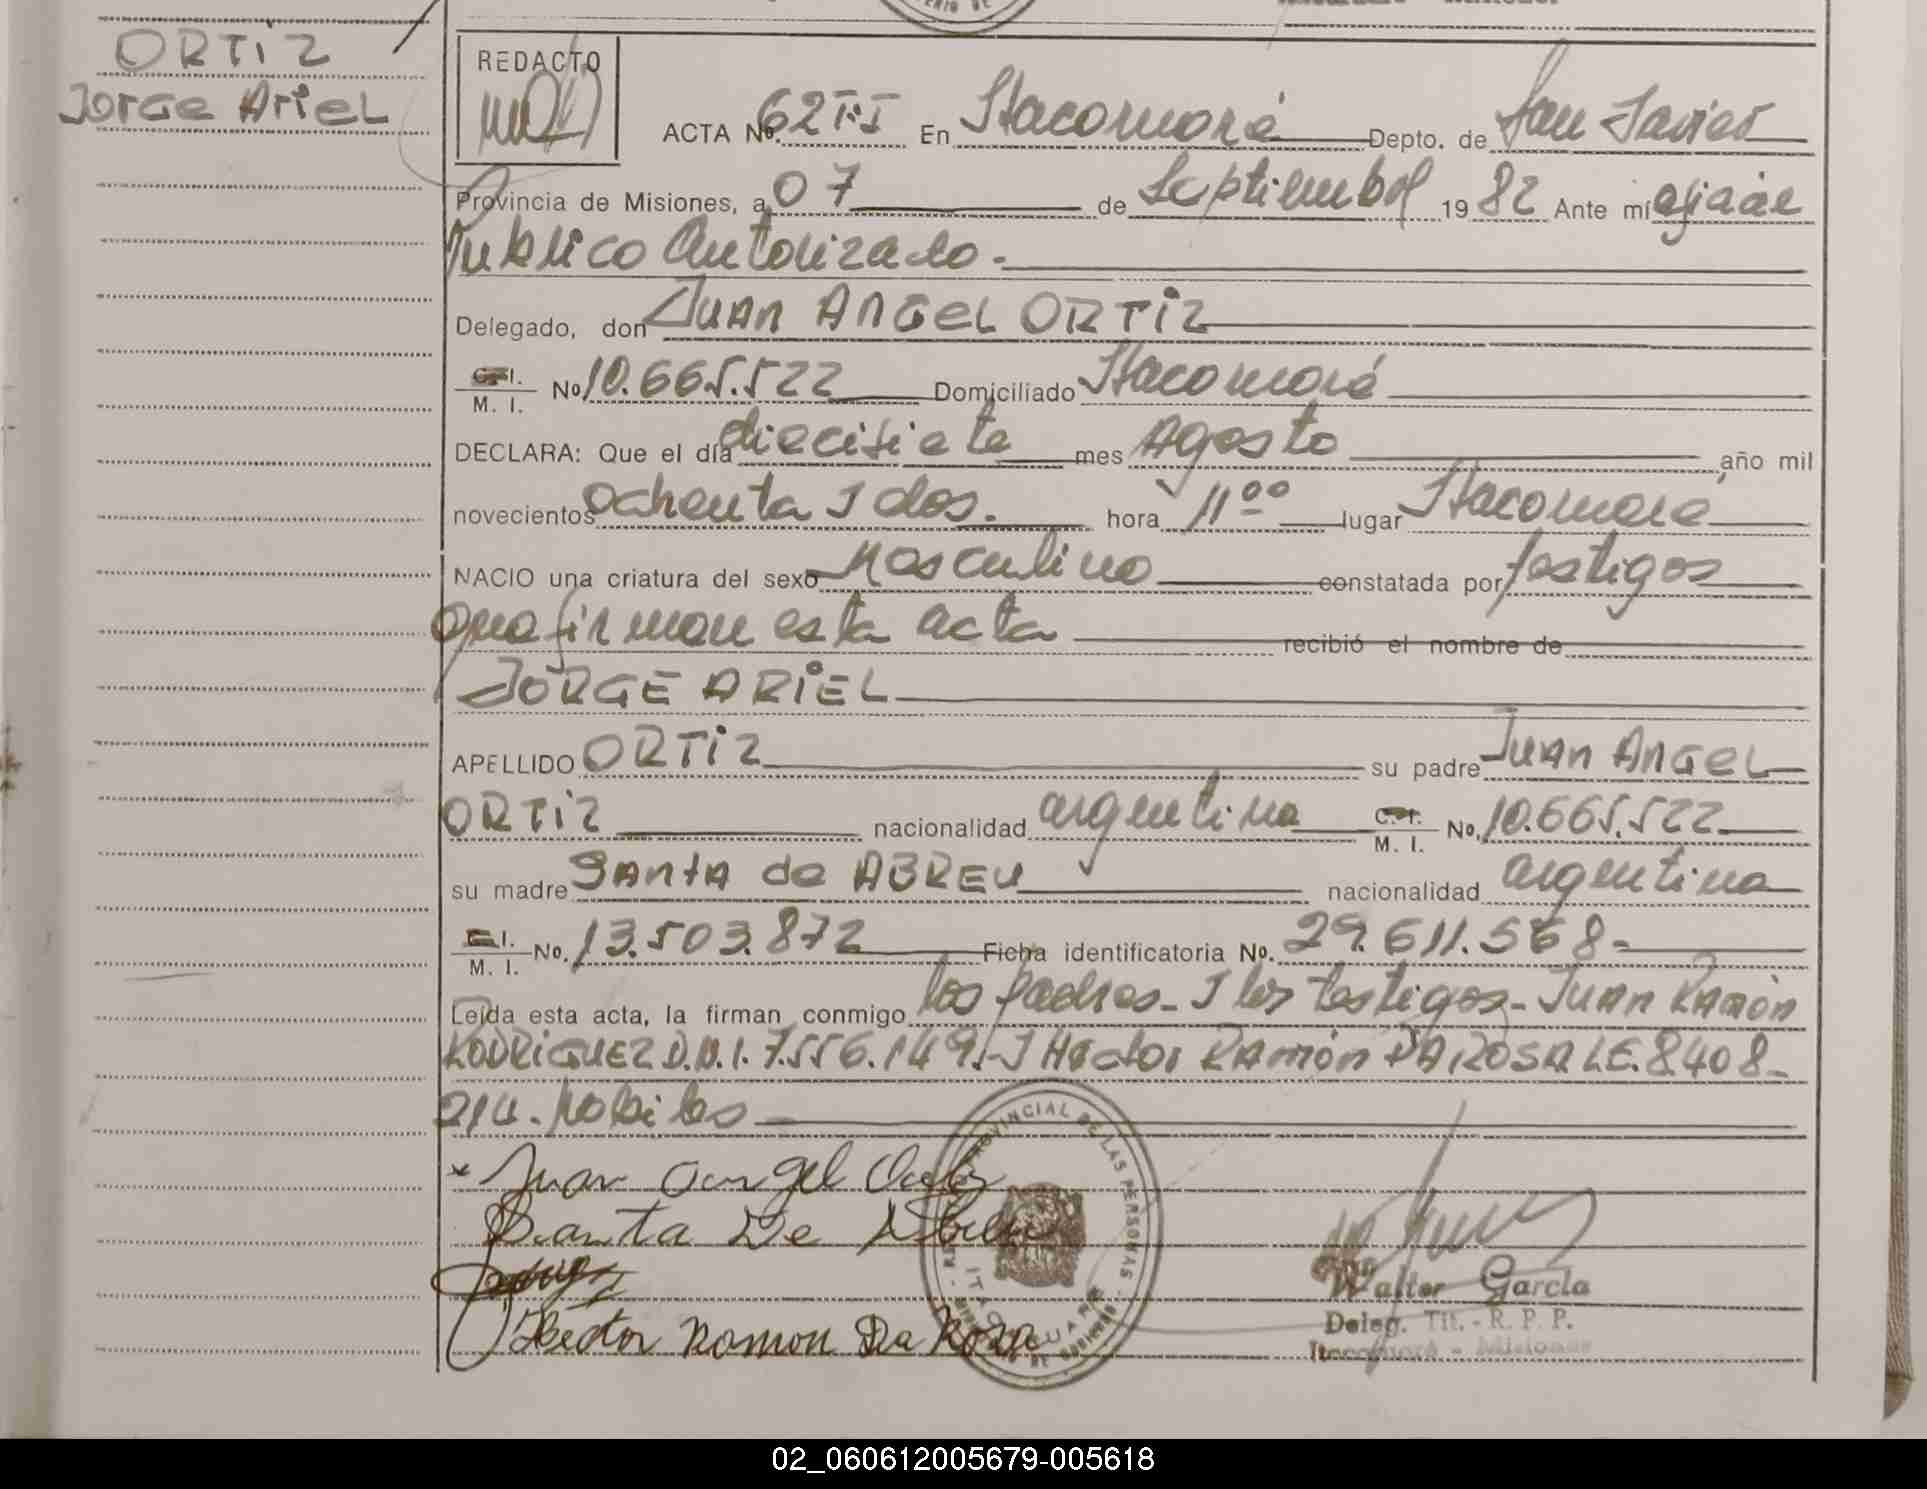 ORTIZ
Jorge Ariel
REDACTO
ACTA No. 62 T.I En Itacaruaré Depto. de San Javier
Provincia de Misiones, a 07 de Septiembre 1982 Ante mí oficial
Publico Autorizado.-
Delegado, don JUAN ANGEL ORTIZ
C. I.
M. I. No 10.665.522 Domiciliado Itacaruaré
DECLARA: Que el día diecisiete mes Agosto año mil
novecientos ochenta y dos. hora 11ºº lugar Itacaruaré
NACIO una criatura del sexo Masculino constatada por testigos
que firman esta acta recibió el nombre de
JORGE ARIEL
APELLIDO ORTIZ su padre JUAN ANGEL
ORTIZ nacionalidad argentina C. I. M. I. No. 10.665.522
su madre SANTA de ABREU nacionalidad argentina
C. I.
M. I. No. 13.503.872 Ficha identificatoria No. 29.611.568-
Leída esta acta, la firman conmigo los padres - y los testigos - JUAN RAMÓN
RODRIGUEZ D.N.I. 7.556.149.- y Hector RAMÓN DA ROSA L.E. 8.408-
214. habiles
Juan Angel Ortiz
Santa De Abreu
Hector Ramon Da Rosa
PROVINCIAL DE LAS PERSONAS
ITACARUARE
Walter García
Deleg. Tit. - R. P. P.
Itacaruaré - Misiones
02_060612005679-005618